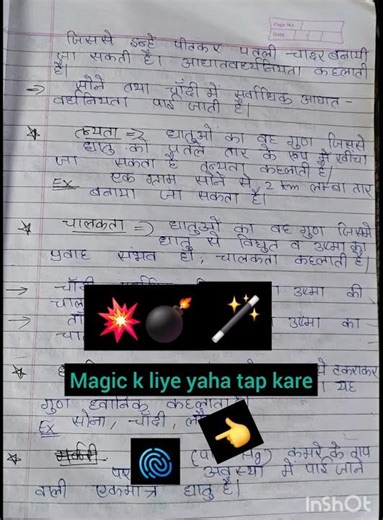 Page No.
Date
जिससे इन्हें पीटकर पतली चादर बनायी
जा सकती है। आघातवर्ध्यनियता कहलाती
है।
→ सोने तथा चाँदी में सर्वाधिक आघात-
वर्ध्यनियता पाई जाती है।
तन्यता => धातुओं का वह गुण जिससे
धातु को पतले तार के रूप में खींचा
जा सकता है तन्यता कहलाती है।
Ex एक ग्राम सोने से 2 km लम्बा तार
बनाया जा सकता है।
चालकता => धातुओं का वह गुण जिसमें
धातु से विद्युत व उष्मा का
प्रवाह संभव हो, चालकता कहलाती है।
→ चाँदी उष्मा की
→ उष्मा का
Magic k liye yaha tap kare
टकराकर
यह
गुण ध्वानिक कहलाता है।
Ex सोना, चाँदी,
मर्करी Hg) कमरे के ताप
पर अवस्था में पाई जाने
वाली एकमात्र धातु है।
InShOt